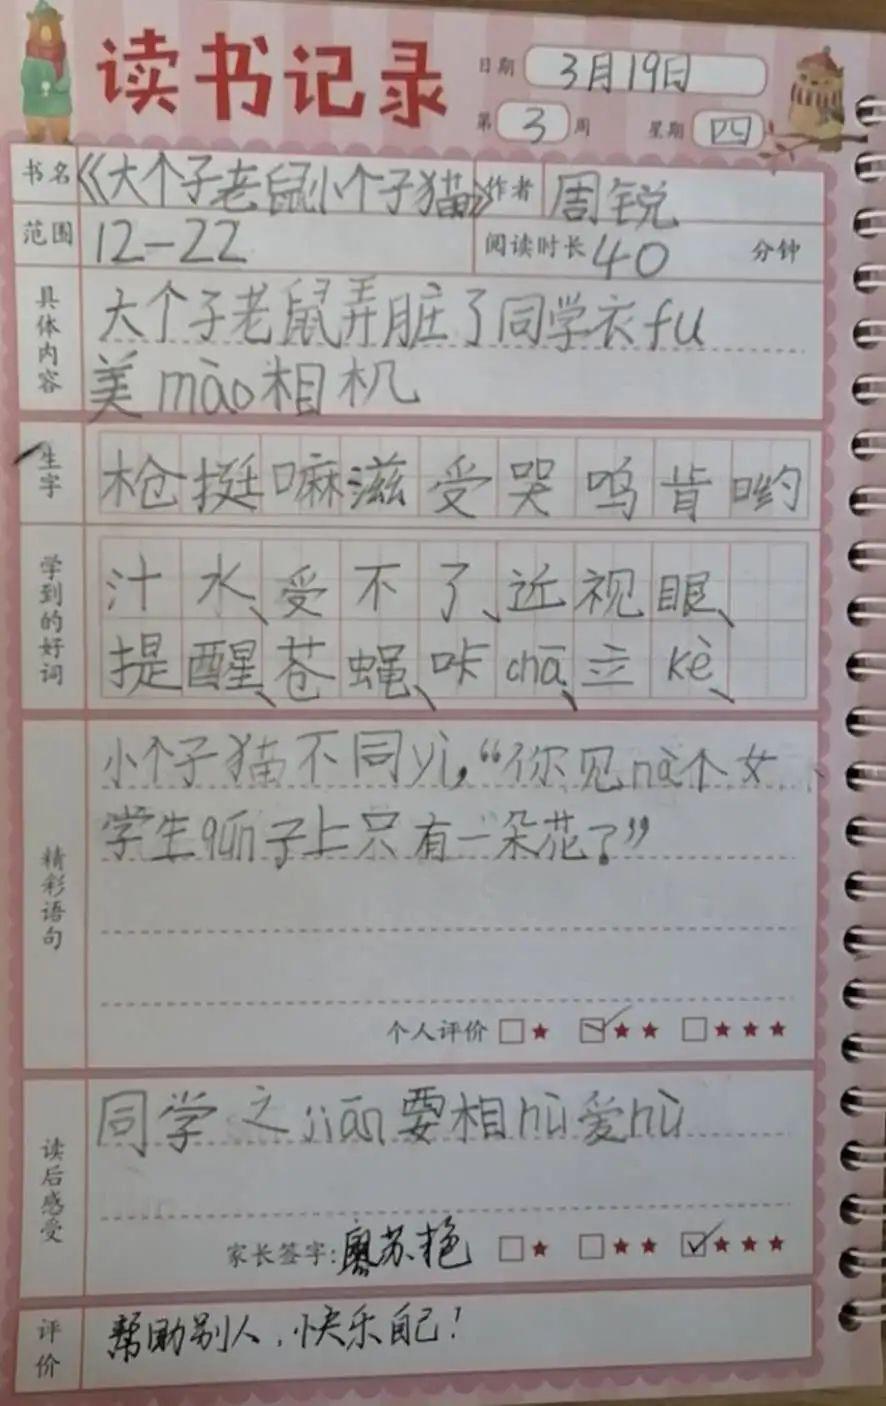 读书记录
日期 3月19日
第 3 周 星期 四
书名 《大个子老鼠小个子猫》 作者 周锐
范围 12-22 阅读时长 40 分钟
具体内容 大个子老鼠弄脏了同学衣fu
美mào相机
生字 枪挺嘛滋受哭呜肯哟
学到的好词 汁水、受不了、近视眼、
提醒、苍蝇、咔chā、立kè、
精彩语句 小个子猫不同yì，“你见nà个女
学生qún子上只有一朵花了”
个人评价 □★ ☑★★ □★★★
读后感受 同学之jiān要相hù爱hù
家长签字：廖苏艳 □★ □★★ ☑★★★
评价 帮助别人，快乐自己！